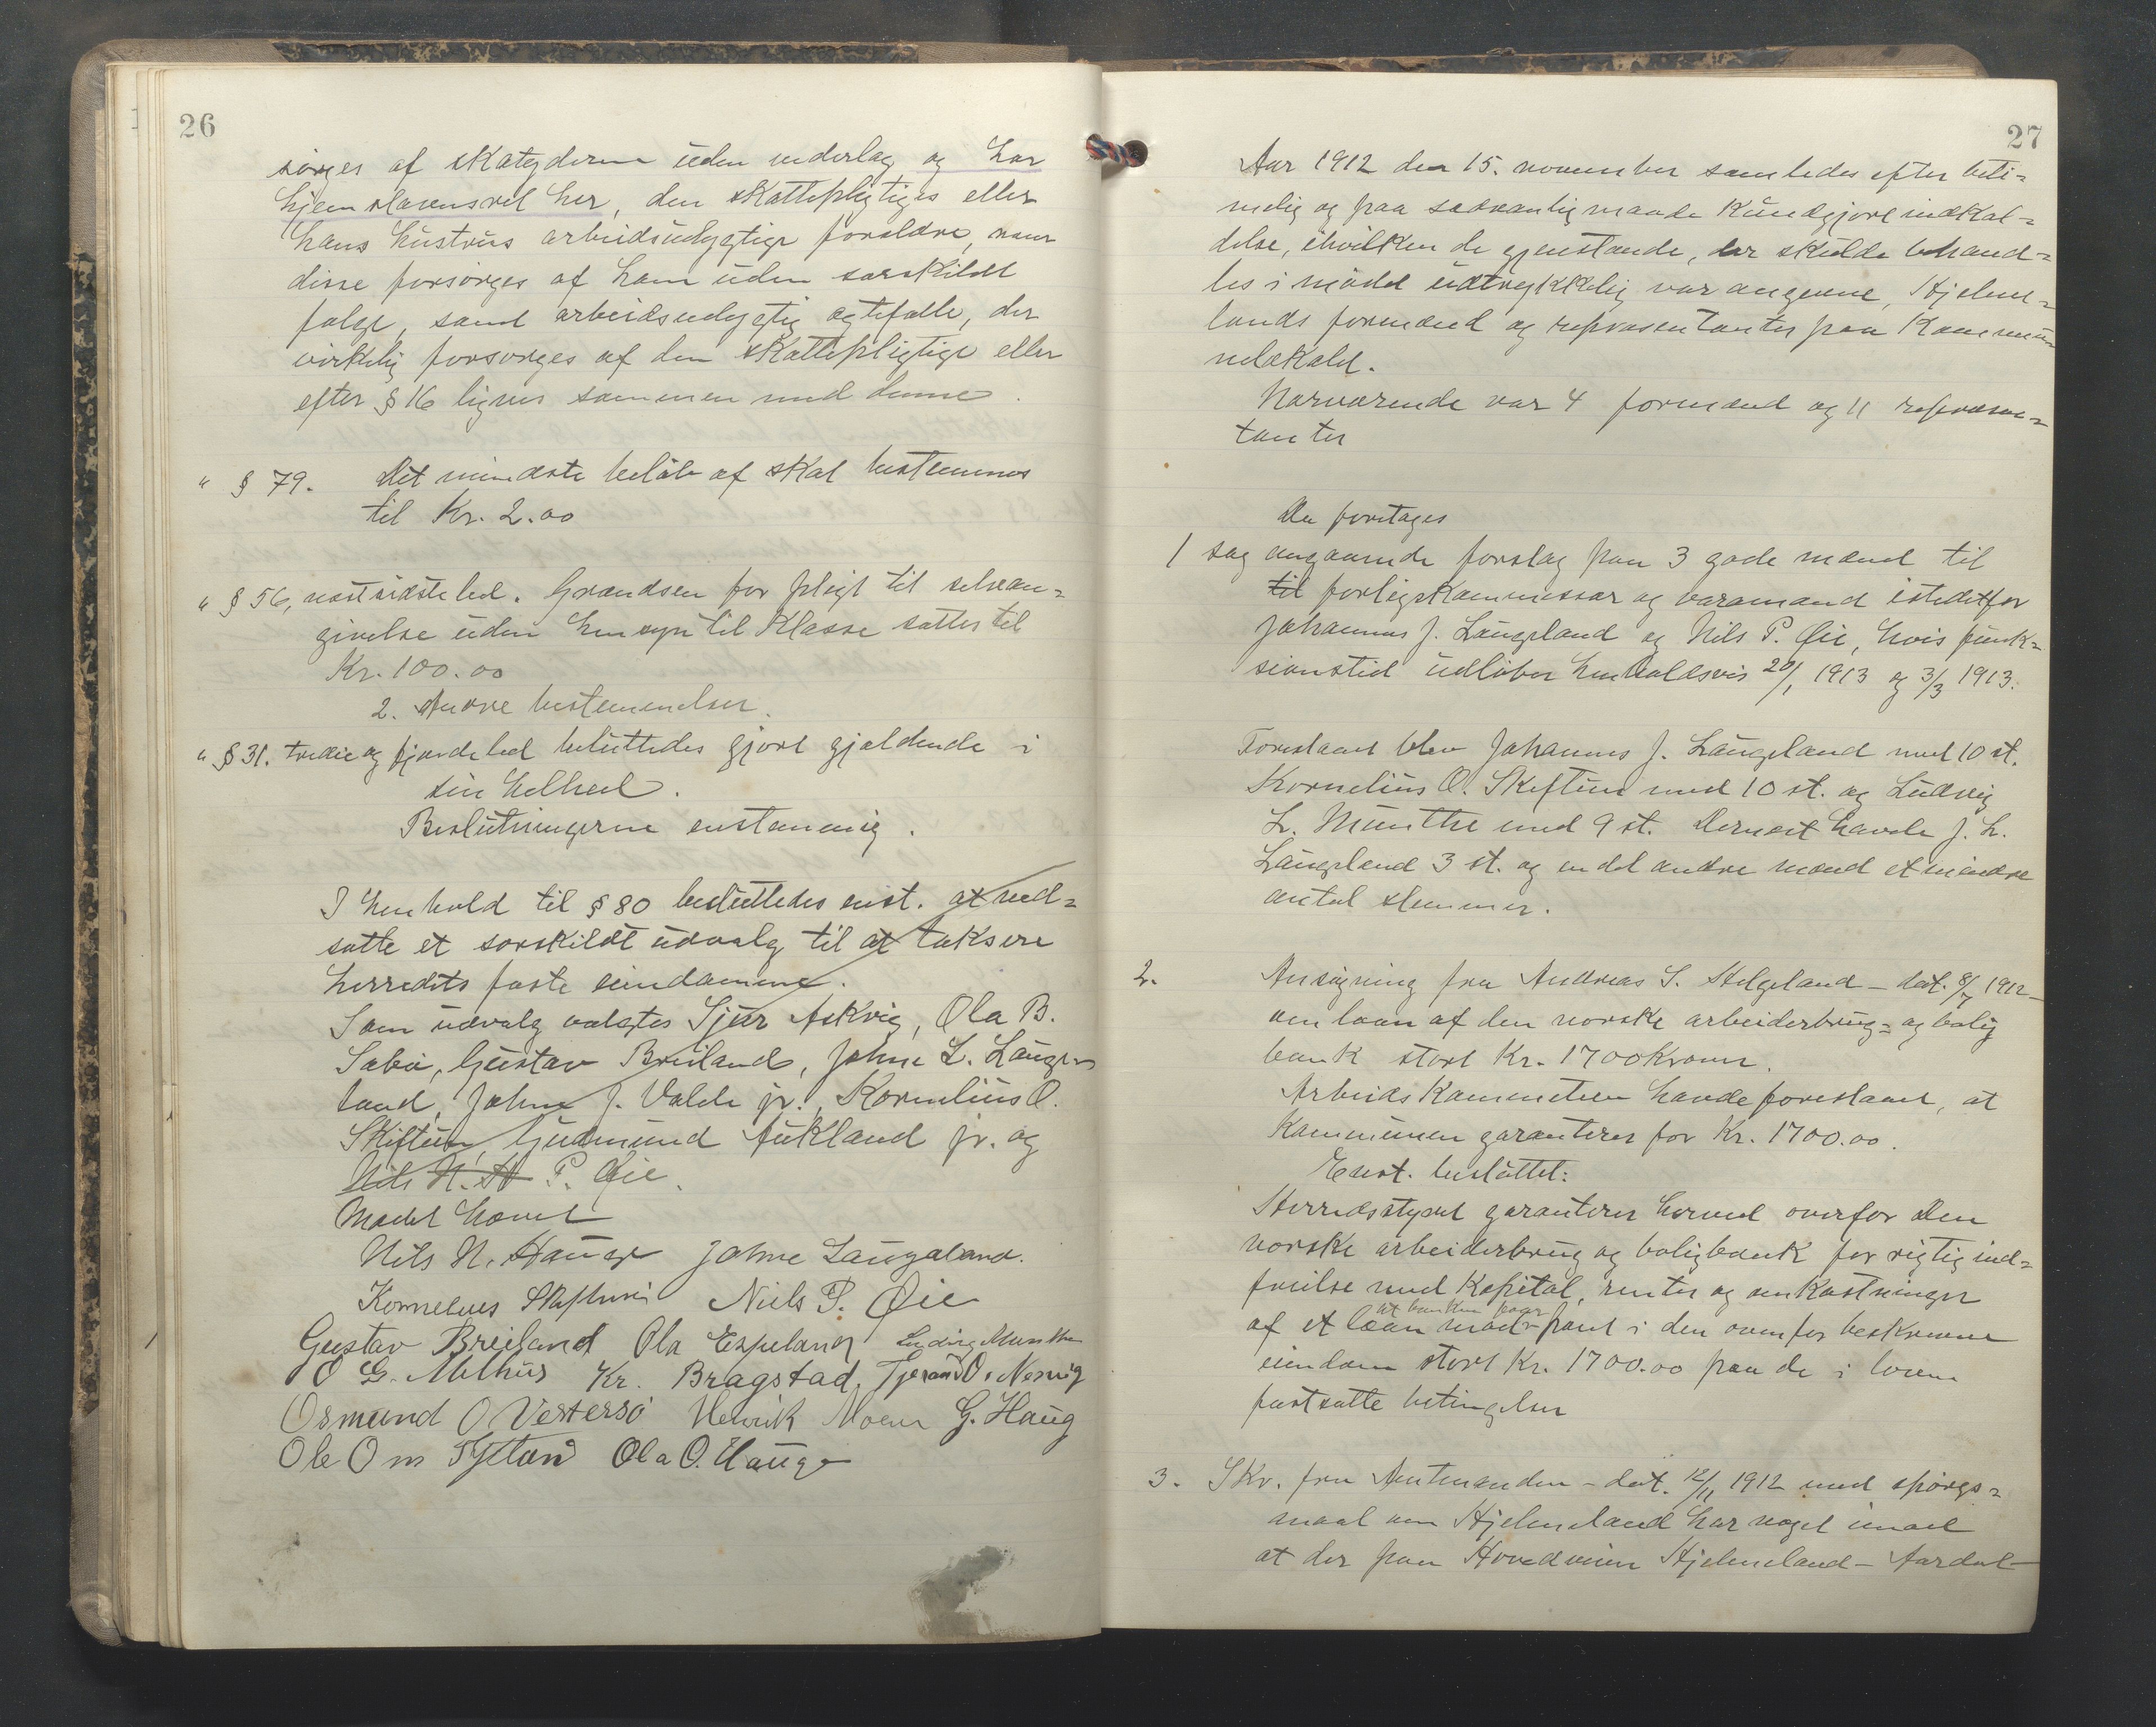 26
sørges af skatyderen uden vederlag og har
hjemstavnsret her, den skattepligtiges eller
hans hustrus arbeidsudygtige forældre, naar
disse forsørges af ham uden særskildt
følge, samt arbeidsudygtig ægtefælle, der
virkelig forsørges af den skattepligtige eller
efter § 16 lignes sammen med denne.
" § 79. Det mindste beløb af skat bestemmes
til Kr. 2.00
" § 56, næstsidste led. Grændsen for pligt til selvan=
givelse uden hensyn til klasse sættes til
Kr. 100.00
2. Andre bestemmelser.
" § 31. tredie og fjerde led besluttedes gjort gjældende i
sin helhed.
Beslutningerne enstemmig.
I henhold til § 80 besluttedes enst. at ned=
sætte et særskildt udvalg til at taksere
herredets faste eiendomme.
Som udvalg valgtes Sjur Askvig, Ola B.
Sabø, Gustav Breiland, Johne L. Lauge=
land, Johne J. Valde jr., Kornelius O.
Skiftun, Gudmund Aukland jr. og
Nils N. H P. Øie.
Mødet hævet
Nils N. Hauge Johne Laugaland.
Kornelius Skiftun Niels P. Øie
Gustav Breiland Ola Espeland Ludvig Munthe
O G. Melhus Kr. Bragstad, Tjerand O. Nesvig
Osmund O Vestersø Henrik Moen G. Haug
Ole Om Tytland Ola O. Hauge
27
Aar 1912 den 15. november samledes efter beti=
melig og paa sædvanlig maade kundgjort indkal=
delse, ihvilken de gjenstande, der skulde behand=
les i mødet udtrykkelig var angivne, Hjelme=
lands formænd og repræsentanter paa Kommu=
nelokalet.
Nærværende var 4 formænd og 11 repræsen=
tanter
Da foretages
1 sag angaaende forslag paa 3 gode mænd til
til forligskommissær og varamand istedetfor
Johannes J. Laugeland og Nils P. Øie, hvis funk=
sionstid udløber henholdsvis 20/1 1913 og 3/3 1913.
Foreslaaet blev Johannes J. Laugeland med 10 st.
Kornelius O. Skiftun med 10 st. og Ludvig
L. Munthe med 9 st. Dernæst havde J. L.
Laugeland 3 st. og en del andre mænd et mindre
antal stemmer.
2. Ansøgning fra Andreas S. Helgeland – dat. 8/7 1912 –
om laan af den norske arbeiderbrug= og bolig
bank stort Kr. 1700 Kroner.
Arbeidskommiteen havde foreslaaet, at
Kommunen garanterer for Kr. 1700.00.
Enst. besluttet:
Herredsstyret garanterer herved overfor Den
norske arbeiderbrug og boligbank for rigtig ind=
frielse med kapital, renter og omkostninger
at banken faar
af et laan mod pant i den ovenfor beskrevne
eiendom stort Kr. 1700.00 paa de i loven
fastsatte betingelser
3. Skr. fra Amtmanden – dat. 12/11 1912 med spørgs=
maal om Hjelmeland har noget imod
at der paa Hovedveien Hjelmeland – Aardal